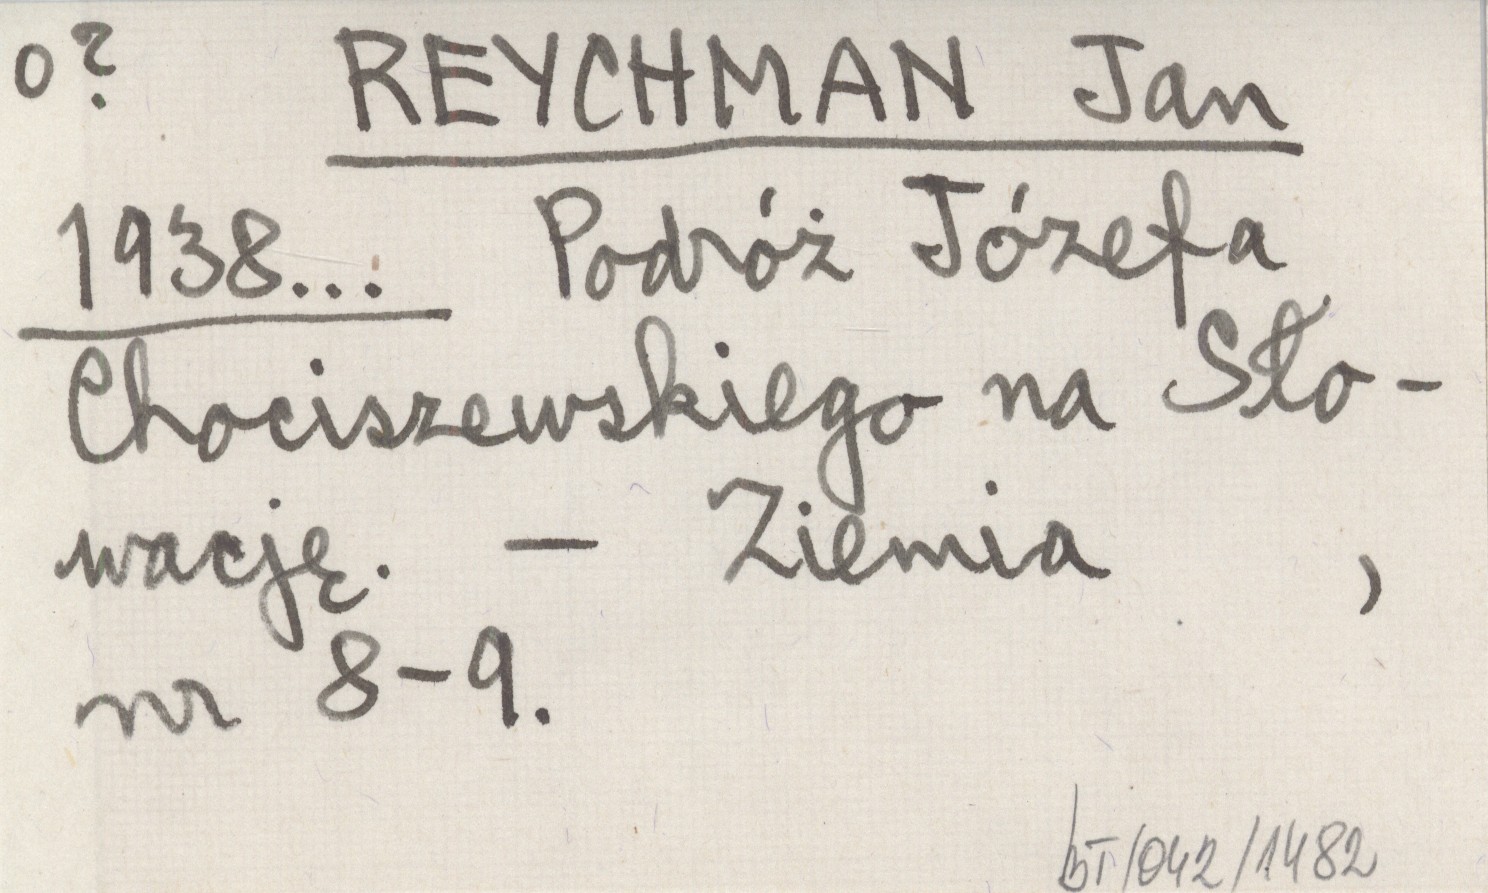 o?
REYCHMAN Jan
1938... Podróż Józefa
Chociszewskiego na Sło-
wację. — Ziemia ,
nr 8-9.
bT/042/1482